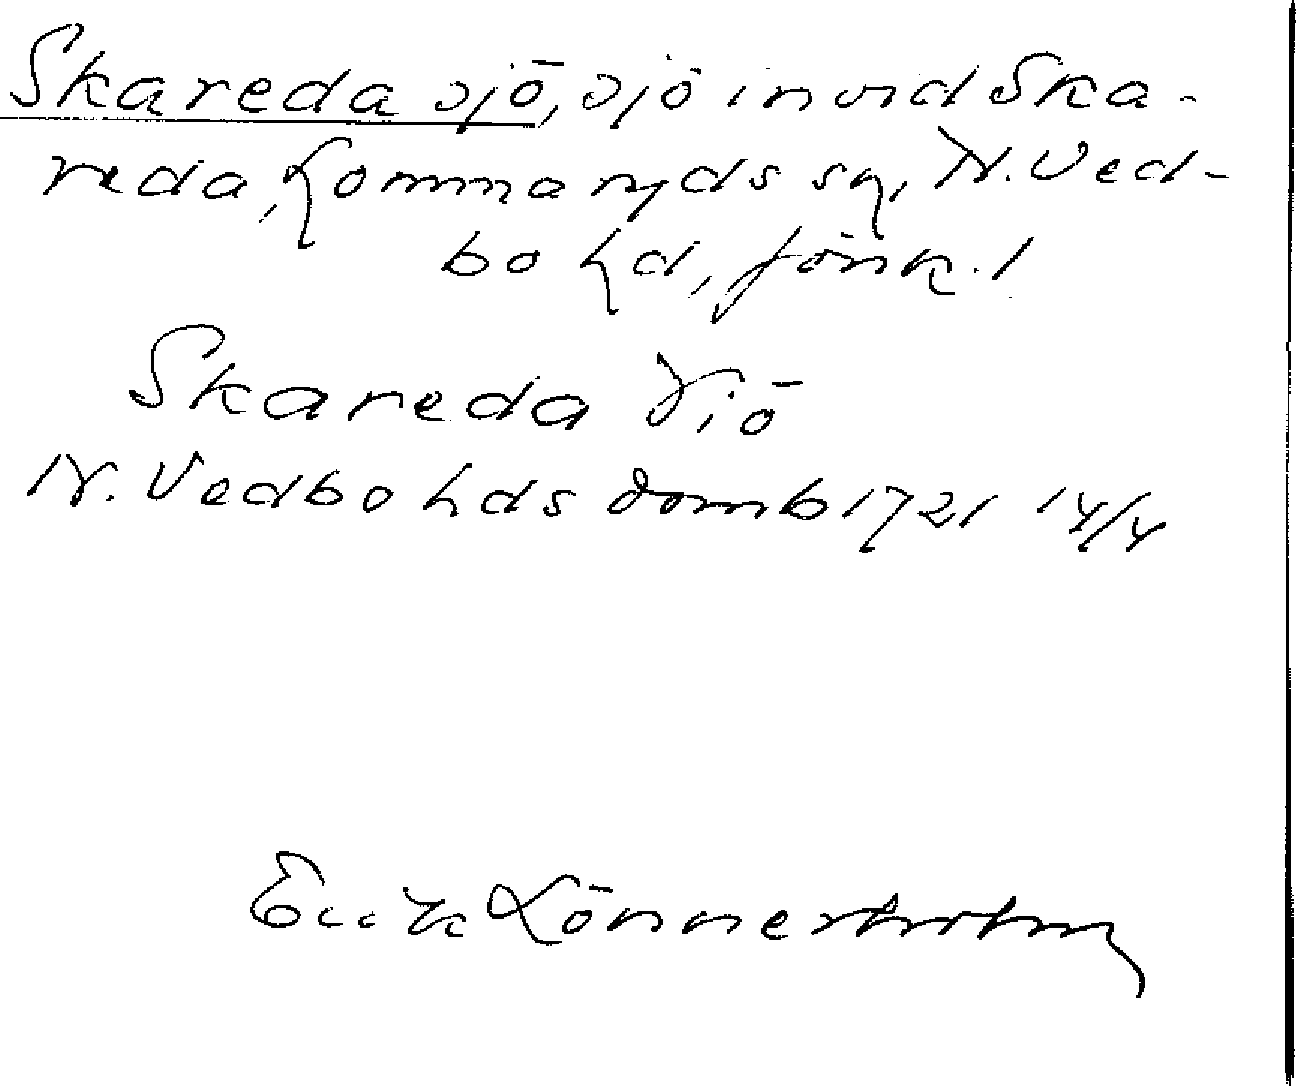 Skareda sjö, sjö invid Ska-
reda, Lommaryds sn, N. Ved-
bo hd, Jönk. l
Skareda Siö
N. Vedbo hds domb 1721 14/4
Erik Lönnerholm